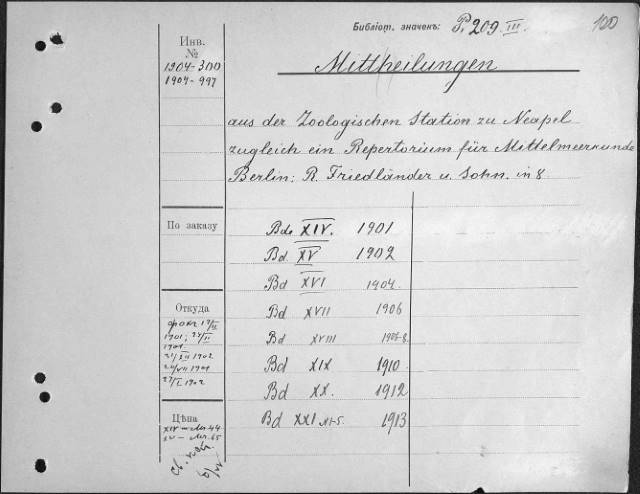 Библіот. значекъ: P. 209 III.
100
Инв.
№
1904-300
1904-997
Mittheilungen
aus der Zoologischen Station zu Neapel
zugleich ein Repertorium für Mittelmeerkunde
Berlin: R. Friedländer u. Sohn. in 8.
По заказу
Bd. XIV. 1901
Bd. XV 1902
Bd XVI 1904
Bd XVII 1906
Bd XVIII
Bd XIX 1910
Bd XX. 1912
Bd XXI N1-5. 1913
Откуда
1901
1902
1901
1902
Цѣна
XIV — 44
XV — 65